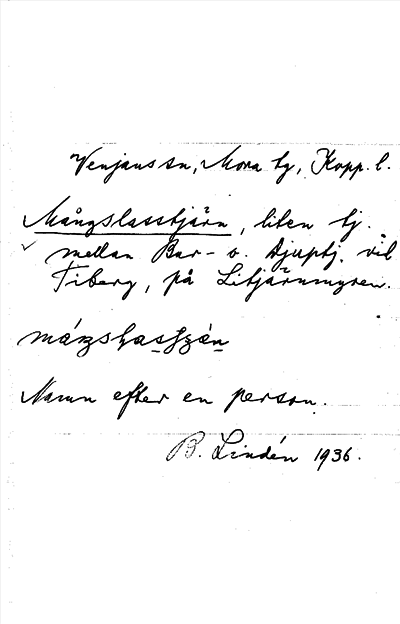 Venjans sn, Mora tg, Kopp. l.
Mångslasstjärn, liten tj.
mellan Bar- o. Djuptj. vid
Fiberg, på Litjärnmyren.
Namn efter en person.
B. Lindén 1936.